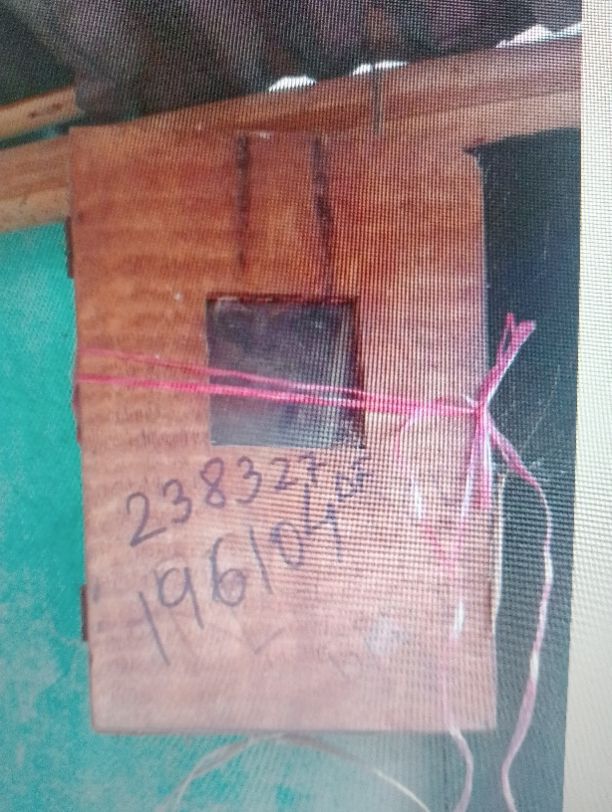 238327
196104 DF